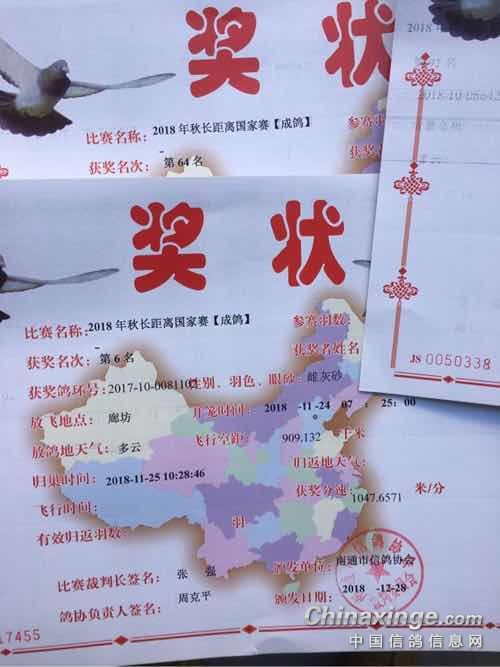 奖 状
比赛名称: 2018 年秋长距离国家赛【成鸽】 参赛
获奖名次: 第 64 名 获奖
2018
2018-10-0
多云
JS 0050338
奖 状
比赛名称: 2018 年秋长距离国家赛【成鸽】 参赛羽数:
获奖名次: 第 6 名 获奖者姓名
获奖鸽环号: 性别、羽色、眼砂: 雌灰砂
放飞地点: 廊坊 开笼时间: 2018 -11-24 07 : 25: 00
放鸽地天气: 多云 飞行空距: 909.132 千米
归巢时间: 2018-11-25 10:28:46 归返地天气:
飞行时间: 获奖分速: 1047.6571 米/分
有效归返羽数: 羽
比赛裁判长签名: 张 强 颁发单位: 南通市信鸽协会
鸽协负责人签名: 周克平 颁发日期: 2018 -12-28
17455
Chinaxinge.com
中国信鸽信息网